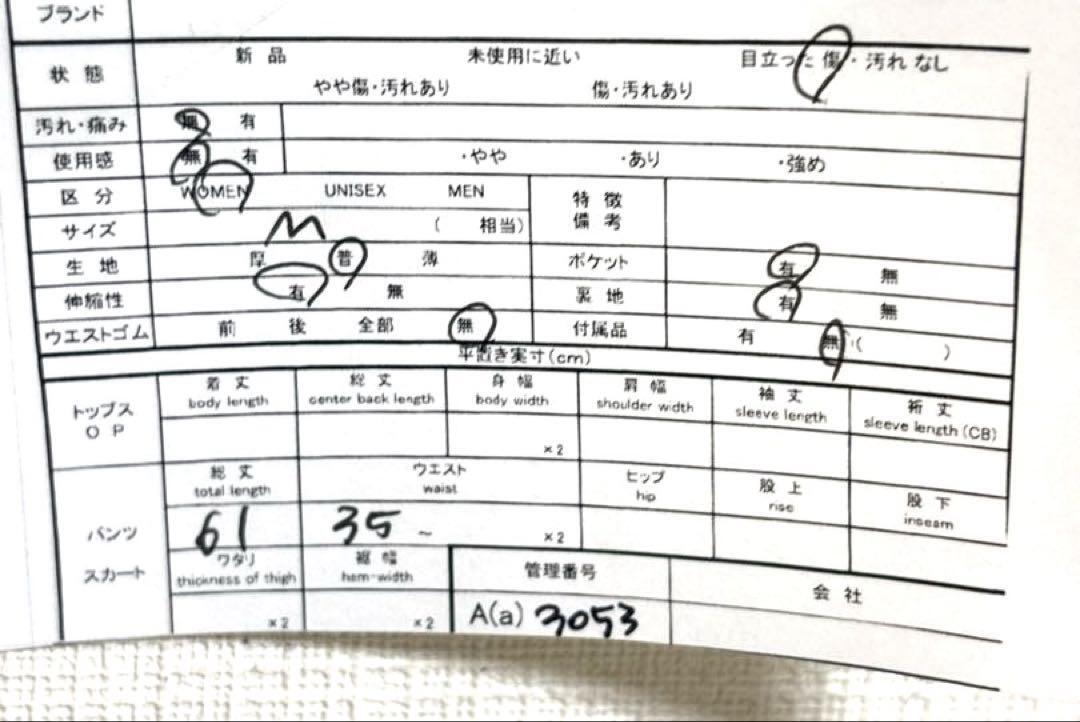 ブランド
状態 新品 未使用に近い 目立った傷・汚れなし
やや傷・汚れあり 傷・汚れあり
汚れ・痛み 無 有
使用感 無 有 ・やや ・あり ・強め
区分 WOMEN UNISEX MEN 特徴備考
サイズ M ( 相当)
生地 厚 普 薄 ポケット 有 無
伸縮性 有 無 裏地 有 無
ウエストゴム 前 後 全部 無 付属品 有 無 ( )
平置き実寸(cm)
トップス OP 着丈 総丈 身幅 肩幅 袖丈 裄丈
body length center back length body width shoulder width sleeve length sleeve length (CB)
×2
パンツ スカート 総丈 ウエスト ヒップ 股上 股下
total length waist hip rise inseam
61 35 ~ ×2
ワタリ 裾幅 管理番号 会社
thickness of thigh hem-width
×2 ×2 A(a) 3053